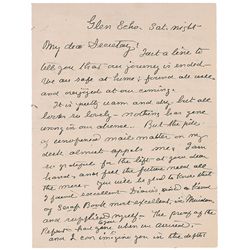 Glen Echo. Sat. night—
My dear Secretary!
Just a line to
tell you that our journey is ended.
We are safe at home; found all well
and rejoicing at our coming.
It is pretty warm and dry, but all
looks so lovely – nothing has gone
wrong in our absence. But the pile
of unopened mail matter on my
desk almost appals me. I am
so grateful for the lift at your dear
hands, and feel the future need all
the more. You will be glad to know that
I found excellent
of Scrap Book most excellent, in
and supplied myself – The proof of the
Report had gone when we arrived,
and I can imagine you in the depths